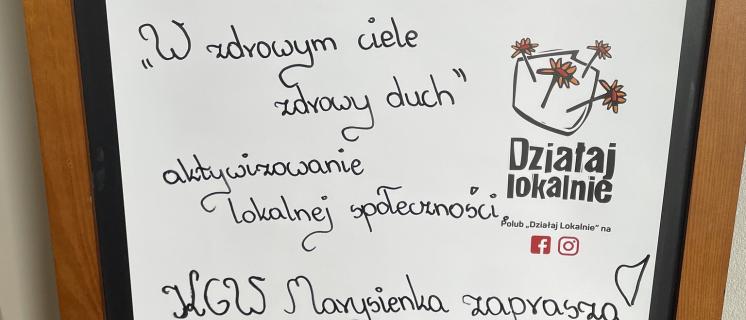 „W zdrowym ciele
zdrowy duch”
aktywizowanie
lokalnej społeczności.
Działaj
lokalnie
Polub „Działaj Lokalnie” na
KGW Marysieńka zaprasza